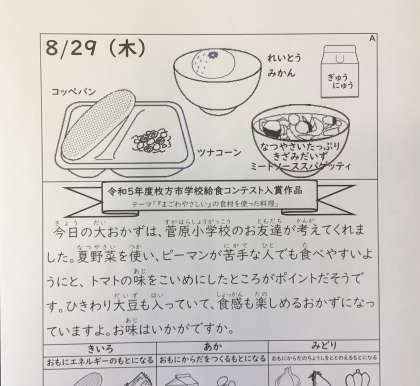 A
8/29（木）
れいとう
みかん
ぎゅう
にゅう
コッペパン
ツナコーン
なつやさいたっぷり
きざみだいず
ミートソーススパゲッティ
令和5年度枚方市学校給食コンテスト入賞作品
テーマ「『まごわやさしい』の食材を使った料理」
今日の大おかずは、菅原小学校のお友達が考えてくれま
した。夏野菜を使い、ピーマンが苦手な人でも食べやすいよ
うにと、トマトの味をこいめにしたところがポイントだそうで
す。ひきわり大豆も入っていて、食感も楽しめるおかずになっ
ていますよ。お味はいかがですか。
きいろ
あか
みどり
おもにエネルギーのもとになる
おもにからだをつくるもとになる
おもにからだのちょうしをととのえるもとになる